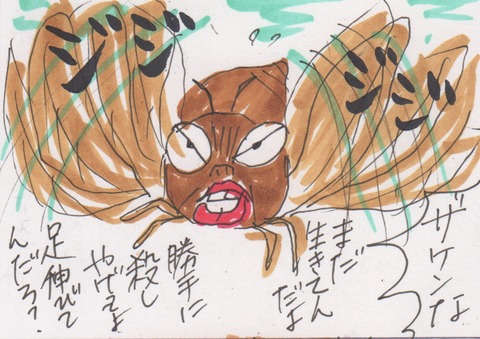 ジジ
ジジ
ザケンなっっ
まだ
生きてん
だよ
勝手に
殺し
やがってよ
足伸びて
んだろ?